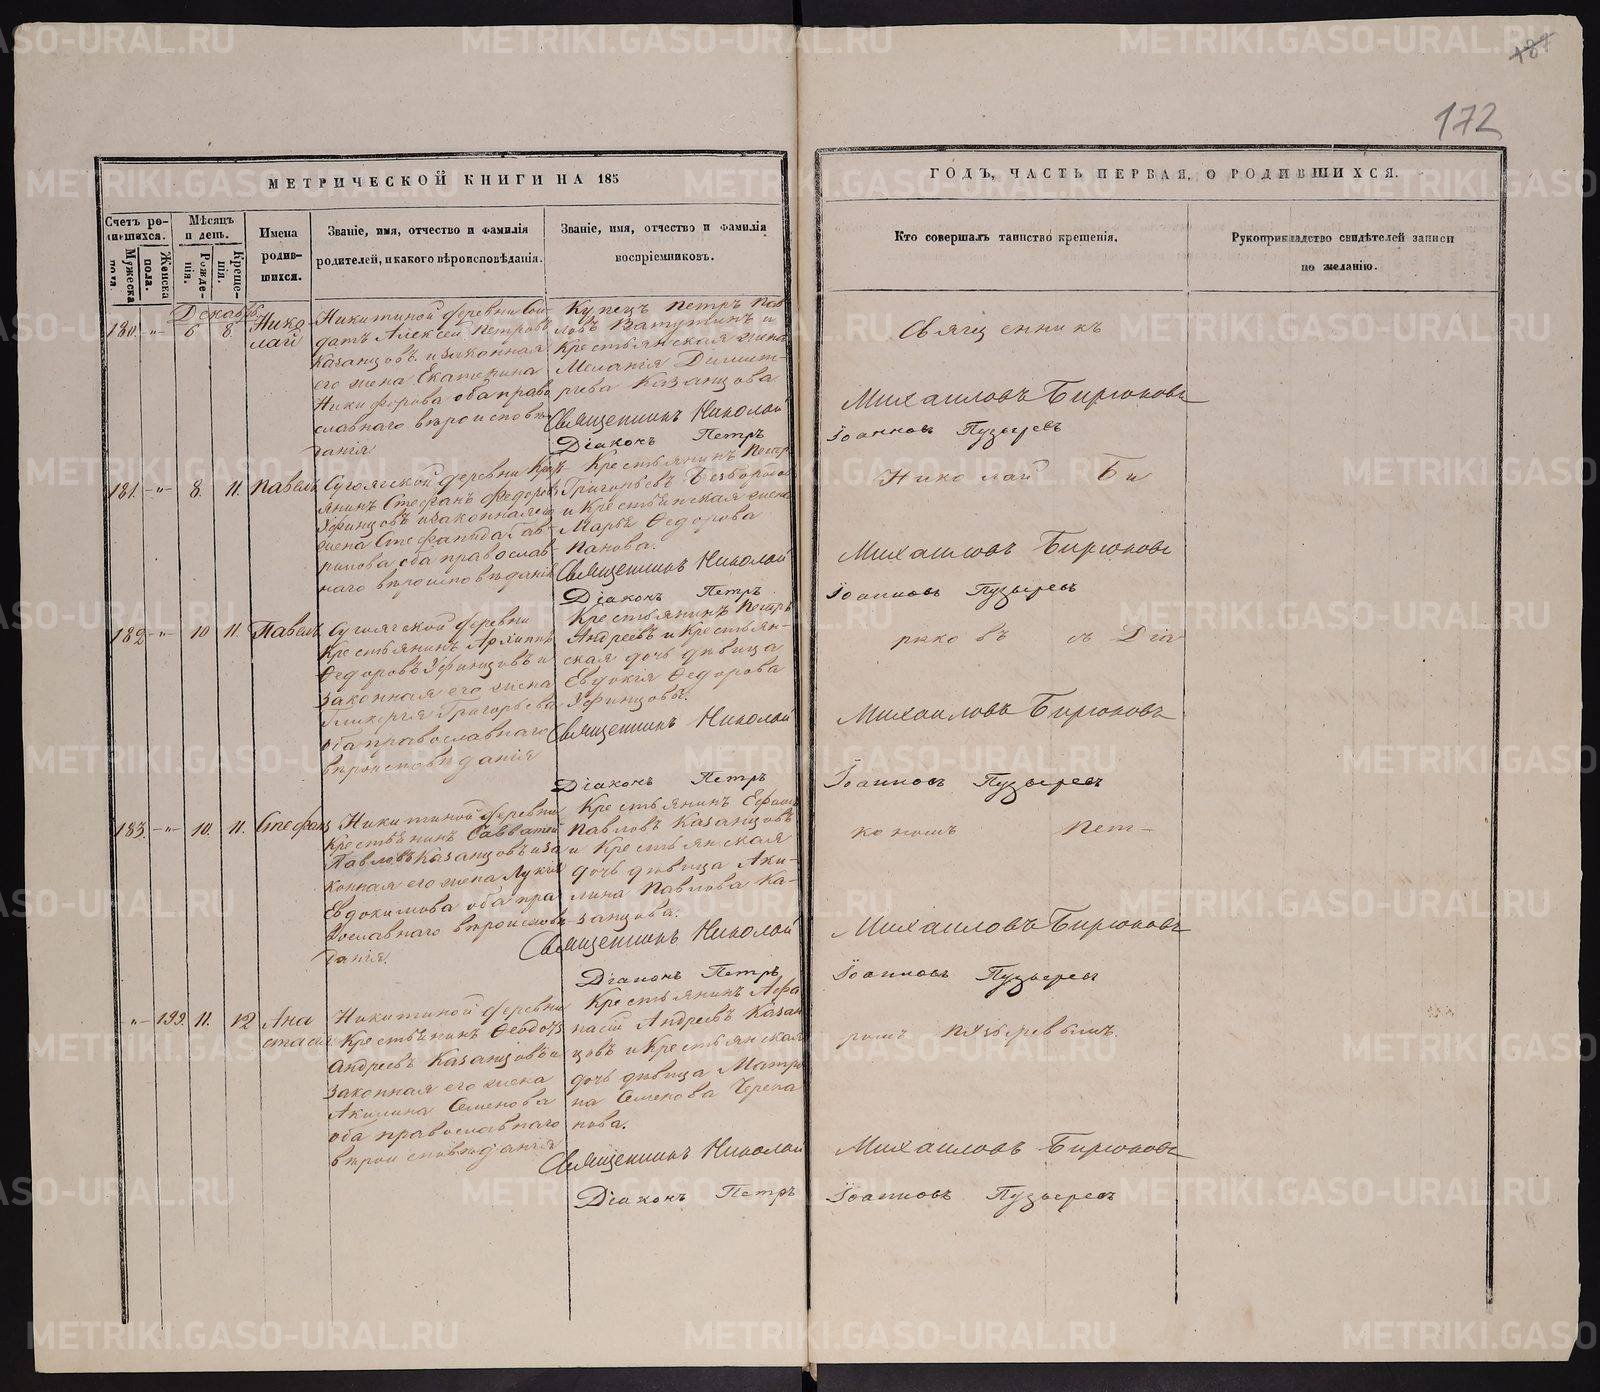 172
МЕТРИЧЕСКОЙ КНИГИ НА 185
ГОДЪ, ЧАСТЬ ПЕРВАЯ, О РОДИВШИХСЯ.
Счетъ родившихся.
Мужеска пола.
Женска пола.
Мѣсяцъ и день.
Рожденія.
Крещенія.
Имена родившихся.
Званіе, имя, отчество и фамилія
родителей, и какого вѣроисповѣданія.
Званіе, имя, отчество и фамилія
воспріемниковъ.
Кто совершалъ таинство крещенія.
Рукоприкладство свидѣтелей записи
по желанію.
Декабр
180. -"- 6 8. Николай
Никитиной деревни Сол
датъ Алексѣй Петровъ
Казанцовъ и законная
его жена Екатерина
Никифорова оба право
славнаго вѣроисповѣ
данія
Купецъ Петръ Пав
ловъ Ватутинъ и
Крестьянская жена
Меланія Димит-
рiева Казанцова.
Священникъ
Священникъ Николай Михаиловъ Бирюковъ
Діаконъ Петръ Іоанновъ Пузыревъ
181. -"- 8. 11. Павелъ
Сугоякской деревни Крест
янинъ Стефанъ Федоровъ
Уфинцовъ и законная его
жена Стефанида Гав-
рилова оба православ-
наго вѣроисповѣданія
Крестьянинъ Петръ
Григорьевъ
и Крестьянская жена
Марья Ѳедорова
Панова.
Николай Би
Священникъ Николай Михаиловъ Бирюковъ
Діаконъ Петръ Іоанновъ Пузыревъ
182 -"- 10 11. Павелъ
Сугоякской деревни
Крестьянинъ Архиппъ
Ѳедоровъ Уфинцовъ и
законная его жена
Гликерія Григорьева
оба православнаго
вѣроисповѣданія
Крестьянинъ Петръ
Андреевъ и Крестьян-
ская дочь дѣвица
Евдокія Ѳедорова
Уфинцовы.
рюковъ съ Діа
Священникъ Николай Михаиловъ Бирюковъ
Діаконъ Петръ Іоанновъ Пузыревъ
183. -"- 10. 11. Стефанъ
Никитиной деревни
Крестьянинъ Савватій
Павловъ Казанцовъ и за
конная его жена Лукія
Евдокимова оба пра
вославнаго вѣроисповѣ
данія.
Крестьянинъ Ефимъ
Павловъ Казанцовъ
и Крестьянская
дочь дѣвица Аки-
лина Павлова Ка-
занцова.
кономъ Пет-
Священникъ Николай Михаиловъ Бирюковъ
Діаконъ Петръ Іоанновъ Пузыревъ
-"- 199. 11. 12 Ана
стасія
Никитиной деревни
Крестьянинъ Ѳеодоръ
Андреевъ Казанцовъ и
законная его жена
Акилина Семенова
оба православнаго
вѣроисповѣданія
Крестьянинъ Афа
насій Андреевъ Казан
цовъ и Крестьянская
дочь дѣвица Матро
на Семенова Черепа
нова.
ромъ Пузыревымъ.
Священникъ Николай Михаиловъ Бирюковъ
Діаконъ Петръ Іоанновъ Пузыревъ
METRIKI.GASO-URAL.RU